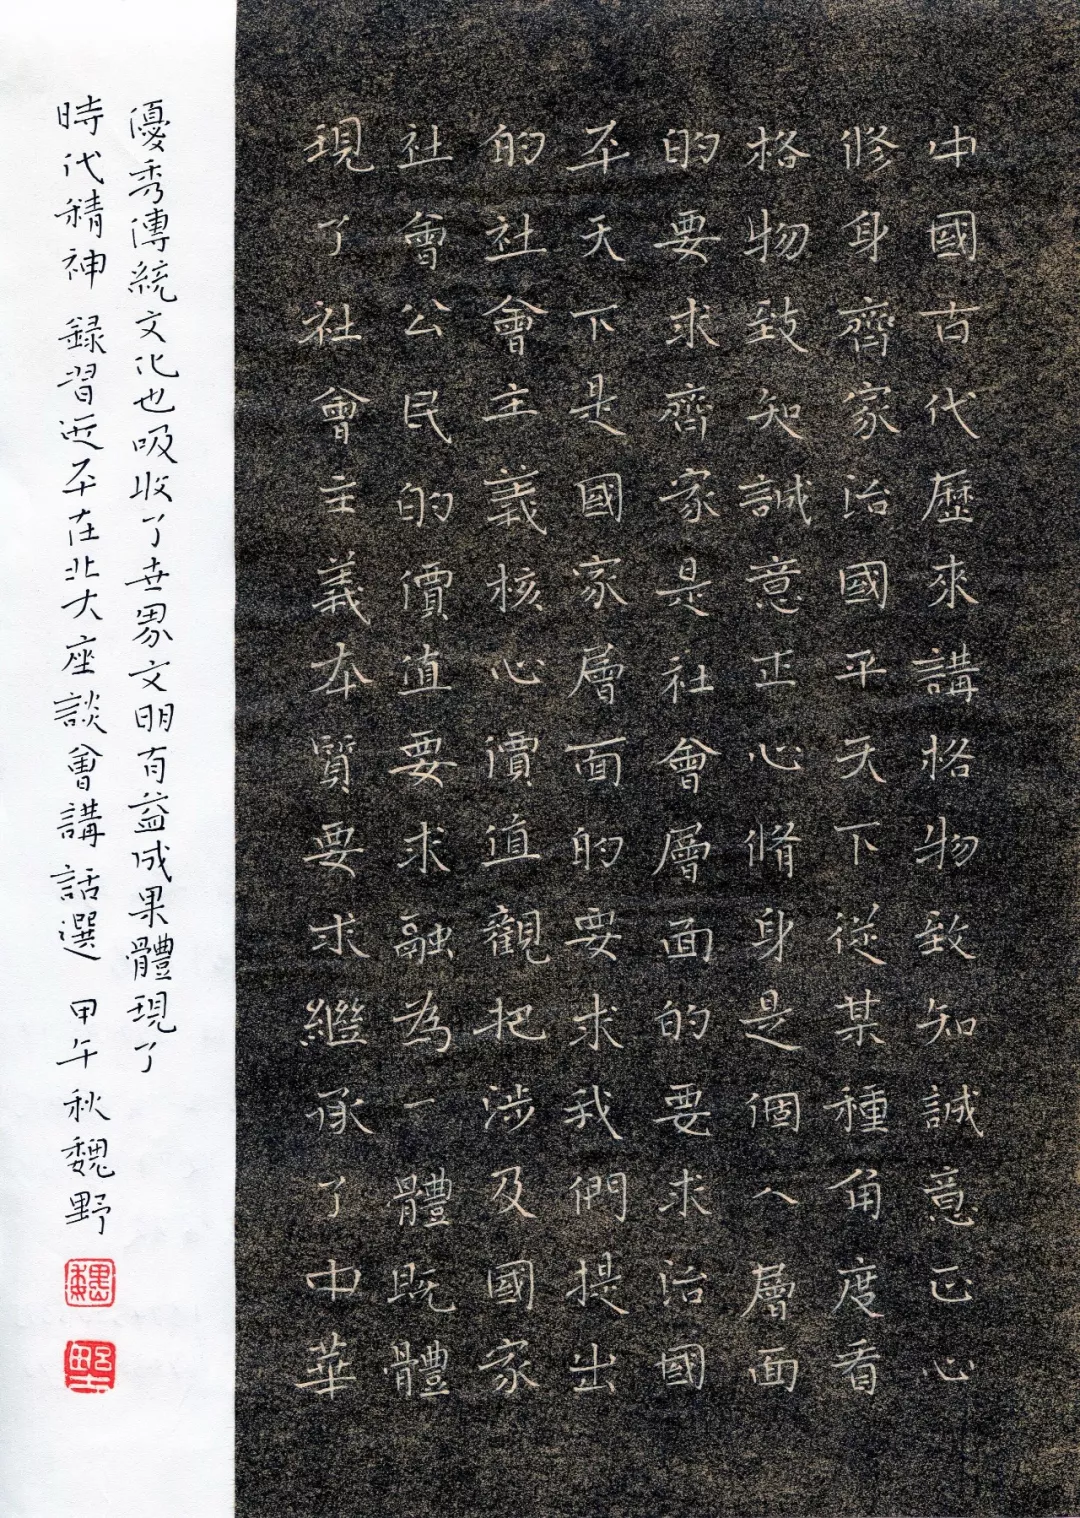 中國古代歷來講格物致知誠意正心
修身齊家治國平天下從某種角度看
格物致知誠意正心脩身是個人層面
的要求齊家是社會層面的要求治國
平天下是國家層面的要求我們提出
的社會主義核心價值觀把涉及國家
社會公民的價值要求融為一體既體
現了社會主義本質要求繼承了中華
優秀傳統文化也吸收了世界文明有益成果體現了
時代精神 錄習近平在北大座談會講話選 甲午秋魏野
魏
野